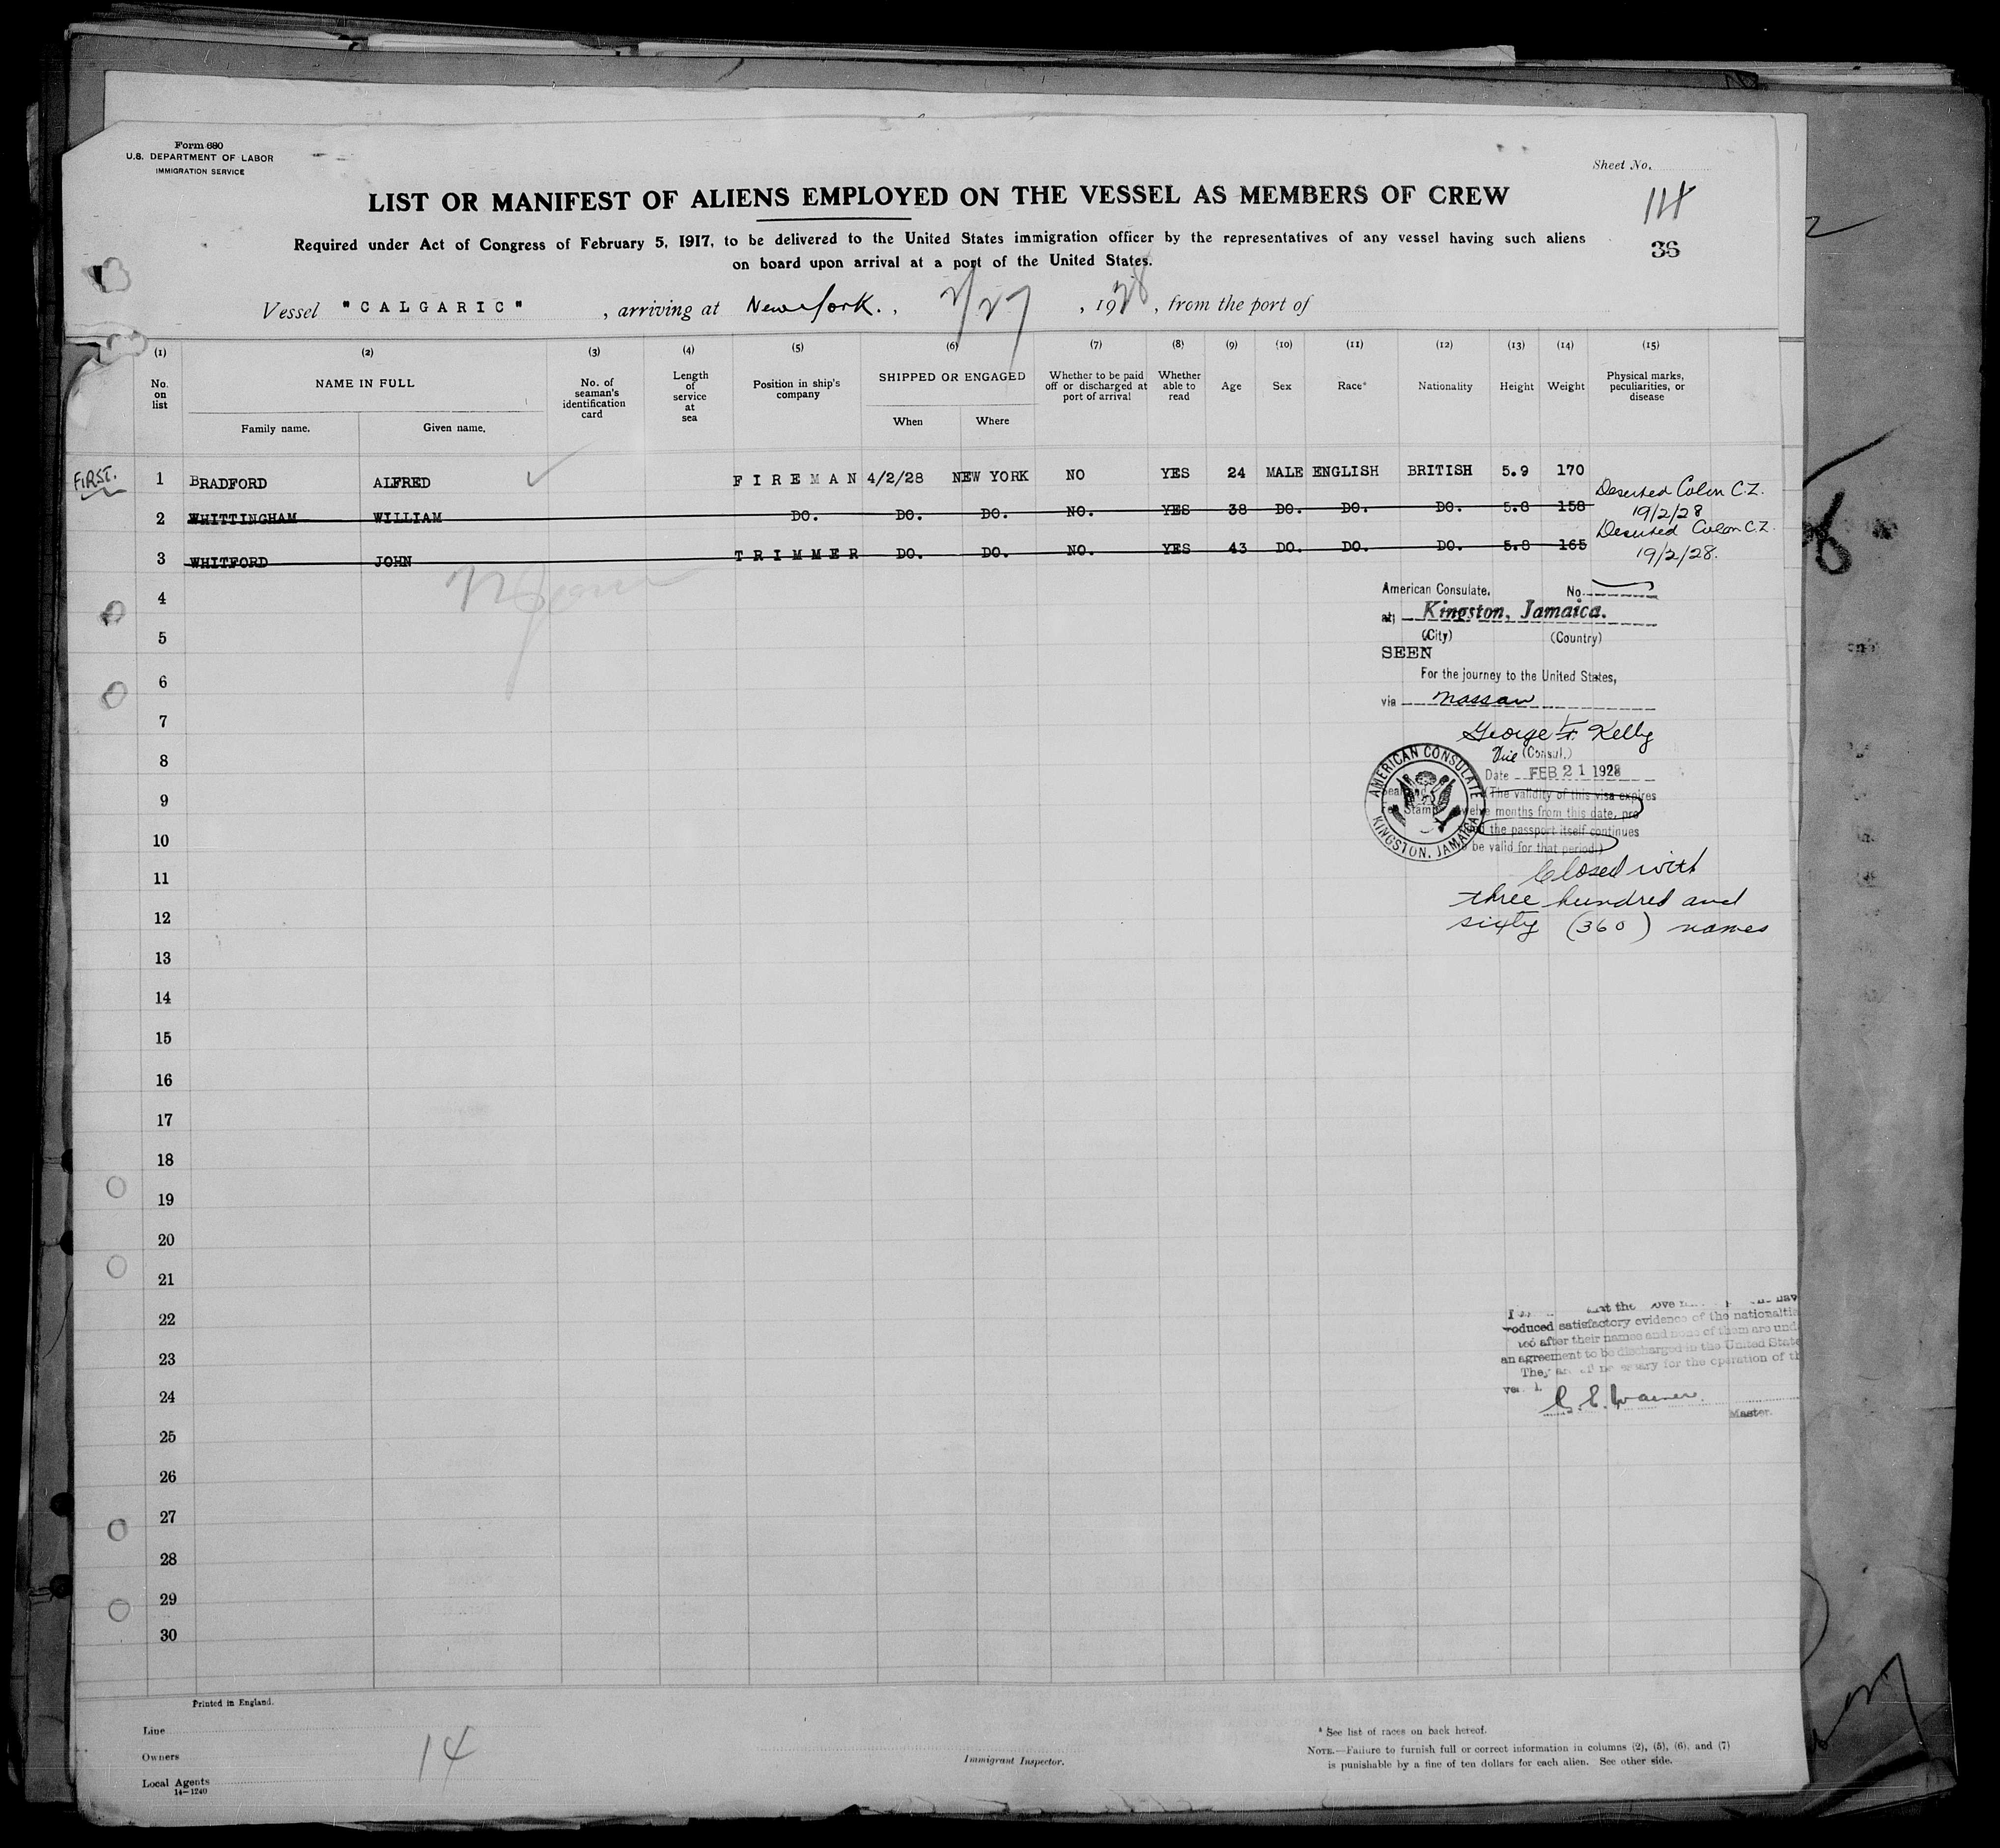 Form 680
U.S. DEPARTMENT OF LABOR
IMMIGRATION SERVICE
Sheet No.
LIST OR MANIFEST OF ALIENS EMPLOYED ON THE VESSEL AS MEMBERS OF CREW
Required under Act of Congress of February 5, 1917, to be delivered to the United States immigration officer by the representatives of any vessel having such aliens
on board upon arrival at a port of the United States.
36
Vessel "CALGARIC", arriving at New York., 2/27, 1928, from the port of
(1) (2) (3) (4) (5) (6) (7) (8) (9) (10) (11) (12) (13) (14) (15)
No. on list
NAME IN FULL
Family name. Given name.
No. of seaman's identification card
Length of service at sea
Position in ship's company
SHIPPED OR ENGAGED
When Where
Whether to be paid off or discharged at port of arrival
Whether able to read
Age
Sex
Race*
Nationality
Height
Weight
Physical marks, peculiarities, or disease
FIRST. 1 BRADFORD ALFRED FIREMAN 4/2/28 NEW YORK NO YES 24 MALE ENGLISH BRITISH 5.9 170
2 WHITTINGHAM WILLIAM DO. DO. DO. NO. YES 38 DO. DO. DO. 5.8 158 Deserted Colon C.Z. 19/2/28
3 WHITFORD JOHN TRIMMER DO. DO. NO. YES 43 DO. DO. DO. 5.8 165 Deserted Colon C.Z. 19/2/28.
4
5
6
7
8
9
10
11
12
13
14
15
16
17
18
19
20
21
22
23
24
25
26
27
28
29
30
American Consulate, No.
at Kingston, Jamaica.
(City) (Country)
SEEN
For the journey to the United States,
via Nassau
George F. Kelly
Vice (Consul.)
Date FEB 21 1928
AMERICAN CONSULATE
KINGSTON, JAMAICA
(The validity of this visa expires
months from this date, pro
the passport itself continues
be valid for that period.)
Closed with
three hundred and
sixty (360) names
satisfactory evidence of the
after their names and none of them are
an agreement to be discharged in the United
for the operation of
Master.
Printed in England.
Line
Owners
Local Agents
14-1240
14
Immigrant Inspector.
* See list of races on back hereof.
NOTE.—Failure to furnish full or correct information in columns (2), (5), (6), and (7)
is punishable by a fine of ten dollars for each alien. See other side.